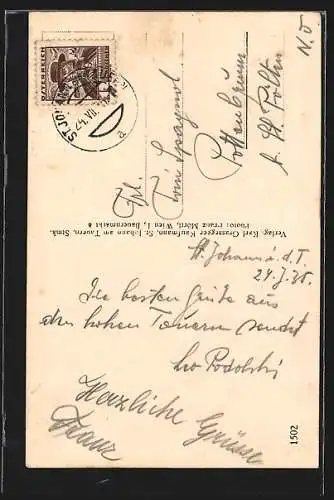 ÖSTERREICH
ST. JOHANN
24. VII
a
N.Ö
Frl.
Toni Spagnol
Pottenbrunn
b. St Pölten
Verlag: Karl Grassegger Kaufmann, St. Johann am Tauern, Stmk.
Photo: Franz Mörtl, Wien I., Bauernmarkt 8
St. Johann i. d. T.
24. 7. 35.
Die besten Grüße aus
den hohen Tauern sendet
Ivo Podolski
Herzliche Grüsse
Franz
1502